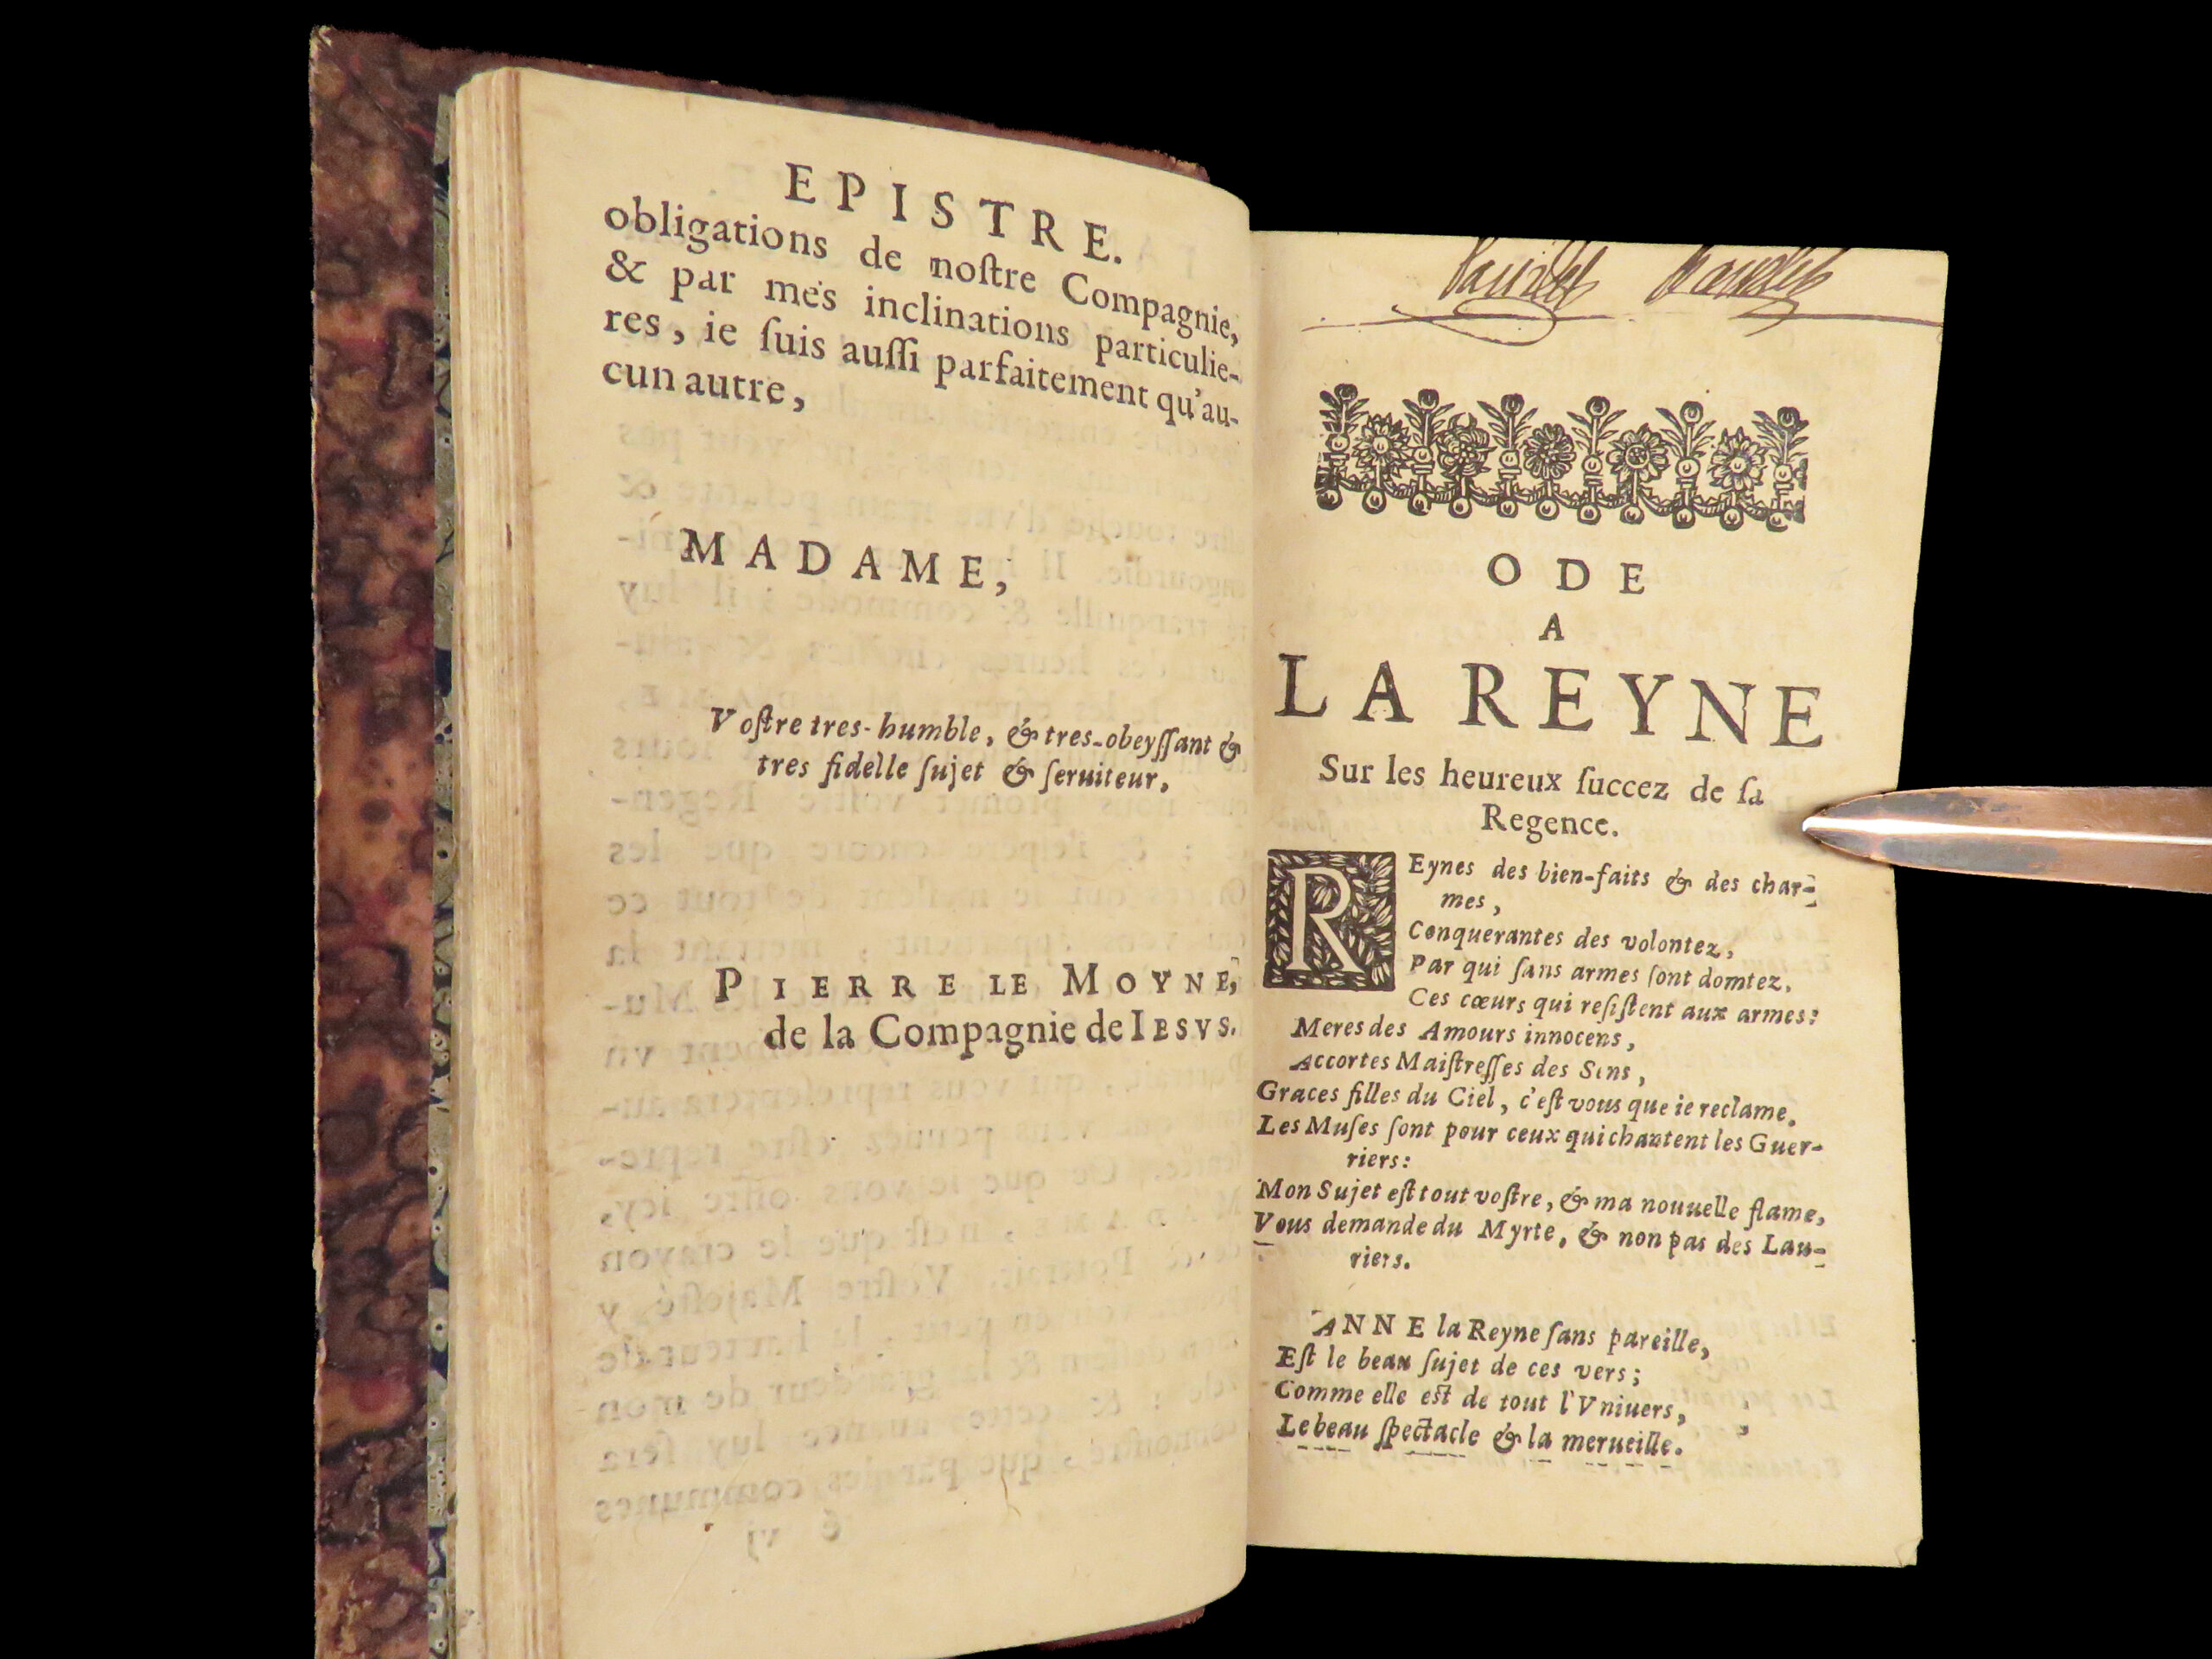 EPISTRE.
obligations de noſtre Compagnie,
& par mes inclinations particulie-
res, ie ſuis auſſi parfaitement qu'au-
cun autre,
MADAME,
Voſtre tres-humble, & tres-obeyſſant &
tres fidelle ſujet & ſeruiteur,
PIERRE LE MOYNE,
de la Compagnie de IESVS.
ODE
A
LA REYNE
Sur les heureux ſuccez de ſa
Regence.
REynes des bien-faits & des char-
mes,
Conquerantes des volontez,
Par qui ſans armes ſont domtez,
Ces cœurs qui reſiſtent aux armes:
Meres des Amours innocens,
Accortes Maiſtreſſes des Sens,
Graces filles du Ciel, c'eſt vous que ie reclame,
Les Muſes ſont pour ceux qui chantent les Guer-
riers:
Mon Sujet eſt tout voſtre, & ma nouuelle flame,
Vous demande du Myrte, & non pas des Lau-
riers.
ANNE la Reyne ſans pareille,
Eſt le beau ſujet de ces vers;
Comme elle eſt de tout l'Vniuers,
Le beau ſpectacle & la merueille.